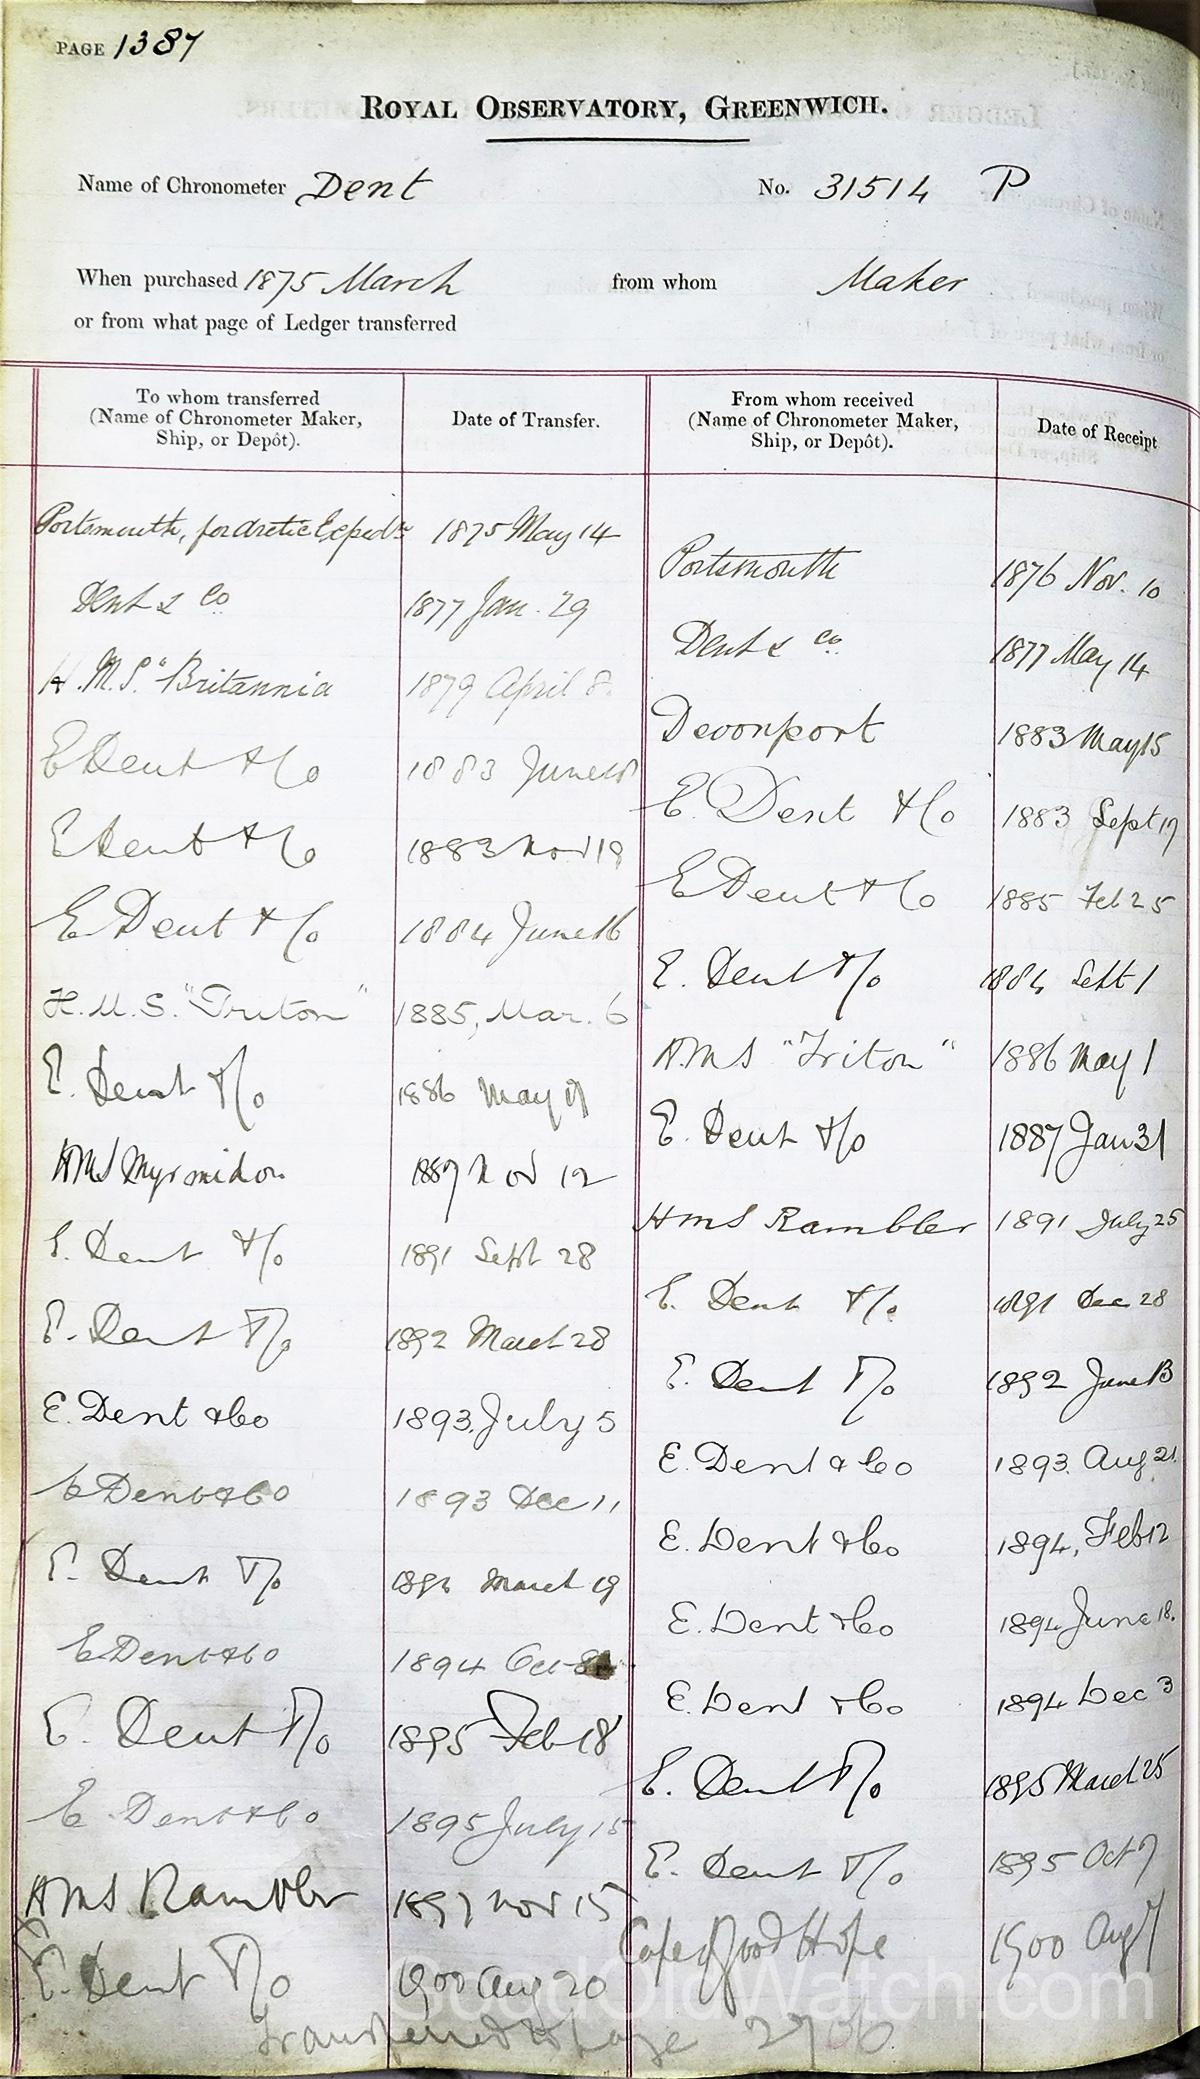 PAGE 1387
ROYAL OBSERVATORY, GREENWICH.
Name of Chronometer Dent No. 31514 P
When purchased 1875 March from whom Maker
or from what page of Ledger transferred
To whom transferred (Name of Chronometer Maker, Ship, or Depôt). Date of Transfer. From whom received (Name of Chronometer Maker, Ship, or Depôt). Date of Receipt
Portsmouth, for Arctic Expedn 1875 May 14
Portsmouth 1876 Nov. 10
Dent & Co 1877 Jan. 29
Dent & Co. 1877 May 14
H.M.S. "Britannia 1879 April 8.
Devonport 1883 May 15
E Dent & Co 1883 June 18
E. Dent & Co 1883 Sept 17
E Dent & Co 1883 Nov 19
E Dent & Co 1885 Feb 25
E Dent & Co 1884 June 16
E. Dent & Co 1884 Sept 1
H.M.S. "Triton" 1885, Mar. 6
HMS "Triton" 1886 May 1
E. Dent & Co 1886 May 17
E. Dent & Co 1887 Jan 31
HMS Myrmidon 1887 Nov 12
HMS Rambler 1891 July 25
E. Dent & Co 1891 Sept 28
E. Dent & Co 1891 Dec 28
E. Dent & Co 1892 March 28
E. Dent & Co 1892 June 13
E. Dent & Co 1893. July 5
E. Dent & Co 1893. Aug 21.
E Dent & Co 1893 Dec 11
E. Dent & Co 1894, Feb 12
E. Dent & Co 1894 March 19
E. Dent & Co 1894 June 18.
E Dent & Co 1894 Oct 8
E. Dent & Co 1894 Dec 3
E. Dent & Co 1895 Feb 18
E. Dent & Co 1895 March 25
E. Dent & Co 1895 July 15
E. Dent & Co 1895 Oct 7
HMS Rambler 1897 Nov 15
Cape of Good Hope 1900 Aug 7
E. Dent & Co 1900 Aug 20
GoodOldWatch.com
Transferred to page